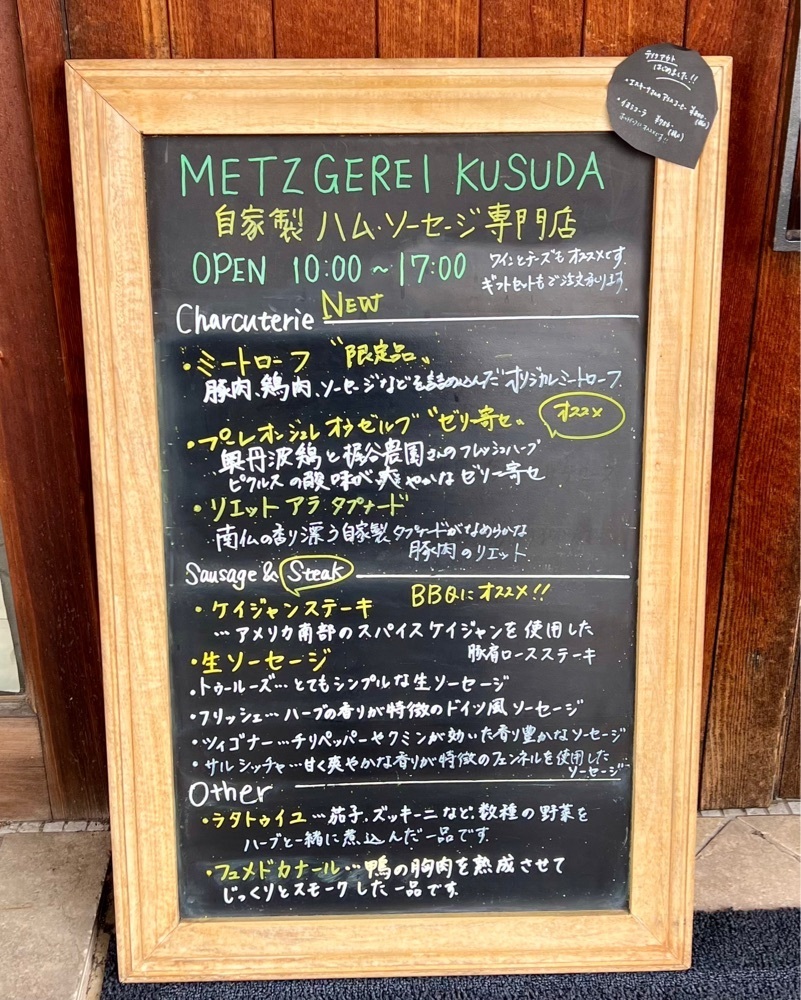 テイクアウト
はじめました!!
METZGEREI KUSUDA
自家製 ハム・ソーセージ専門店
OPEN 10:00〜17:00
ワインとチーズもオススメです。
ギフトセットもご注文承ります
Charcuterie NEW
・ミートローフ "限定品"
豚肉、鶏肉、ソーセージなどを詰め込んだオリジナルミートローフ
・プーレオンジュレオウゼルブ "ゼリー寄せ" オススメ
奥丹波鶏と梶谷農園さんのフレッシュハーブ
ピクルスの酸味が爽やかなゼリー寄せ
・リエット アラ タプナード
南仏の香り漂う自家製タプナードがなめらかな
豚肉のリエット
Sausage & Steak
BBQにオススメ!!
・ケイジャンステーキ
…アメリカ南部のスパイスケイジャンを使用した
豚肩ロースステーキ
・生ソーセージ
・トゥールーズ…とてもシンプルな生ソーセージ
・フリッシェ…ハーブの香りが特徴のドイツ風ソーセージ
・ツィゴナー…チリペッパーやクミンが効いた香り豊かなソーセージ
・サルシッチャ…甘く爽やかな香りが特徴のフェンネルを使用した
ソーセージ
Other
・ラタトゥイユ…茄子、ズッキーニなど、数種の野菜を
ハーブと一緒に煮込んだ一品です。
・フュメドカナール…鴨の胸肉を熟成させて
じっくりとスモークした一品です。